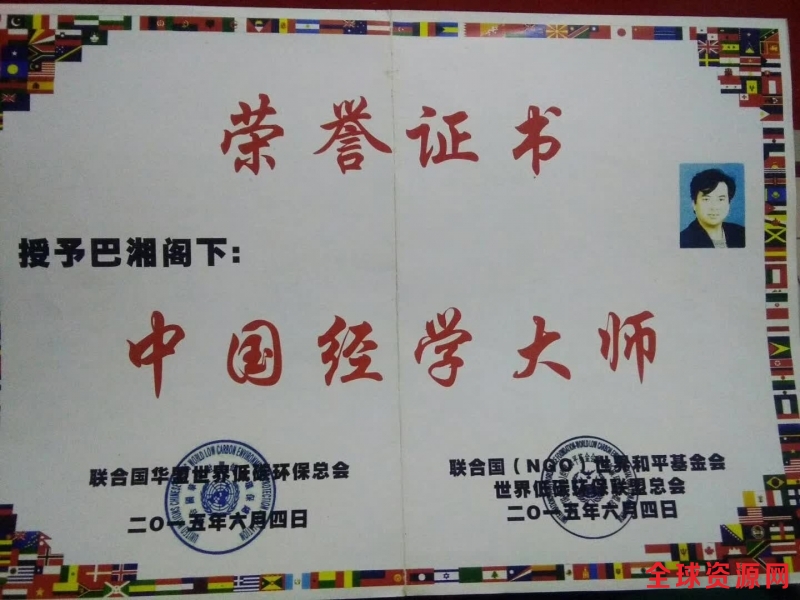 荣誉证书
授予巴湘阁下:
中国经学大师
联合国华盟世界低碳环保总会
二〇一五年六月四日
联合国（NGO）世界和平基金会
世界低碳环保联盟总会
二〇一五年六月四日
全球资源网